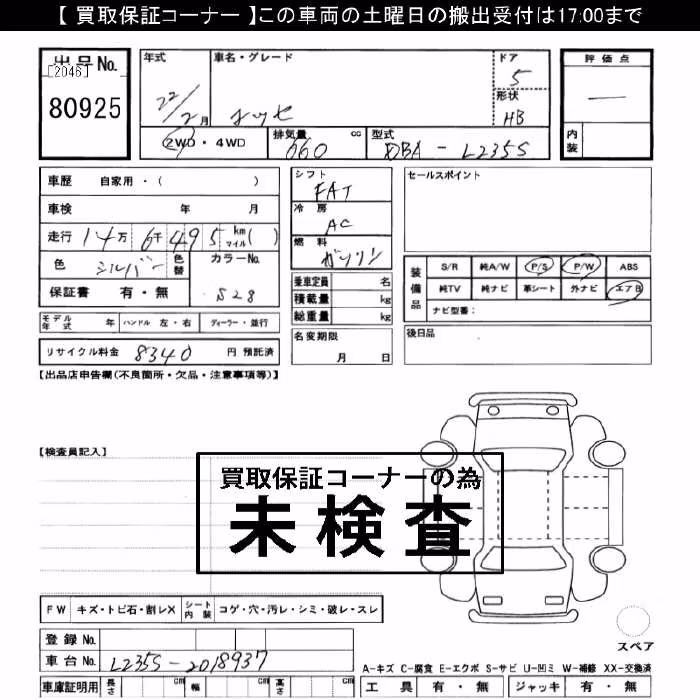 【 買取保証コーナー 】この車両の土曜日の搬出受付は17:00まで
出品No.
[2046]
80925
年式
22/2月
車名・グレード
エッセ
ドア
5
形状
HB
評価点
—
内装
2WD・4WD
排気量 660 cc
型式 DBA - L235S
車歴 自家用・( )
車検 年 月
走行 14万 6千 495 km マイル ( )
色 シルバー 色替
カラーNo. S28
保証書 有・無
シフト
FAT
冷房
AC
燃料
ガソリン
乗車定員 名
積載量 kg
総重量 kg
セールスポイント
装備品
S/R 純A/W P/S P/W ABS
純TV 純ナビ 革シート 外ナビ エアB
ナビ型番:
モデル年式 年 ハンドル 左・右 ディーラー・並行
名変期限
月 日
後日品
リサイクル料金 8340 円 預託済
【出品店申告欄(不良箇所・欠品・注意事項等)】
【検査員記入】
買取保証コーナーの為
未検査
FW キズ・トビ石・割レX シート内装 コゲ・穴・汚レ・シミ・破レ・スレ
登録No.
車台No. L235S-2018937
スペア
A-キズ C-腐食 E-エクボ S-サビ U-凹ミ W-補修 XX-交換済
車庫証明用 長さ cm 幅 cm 高さ cm
工具 有・無 ジャッキ 有・無